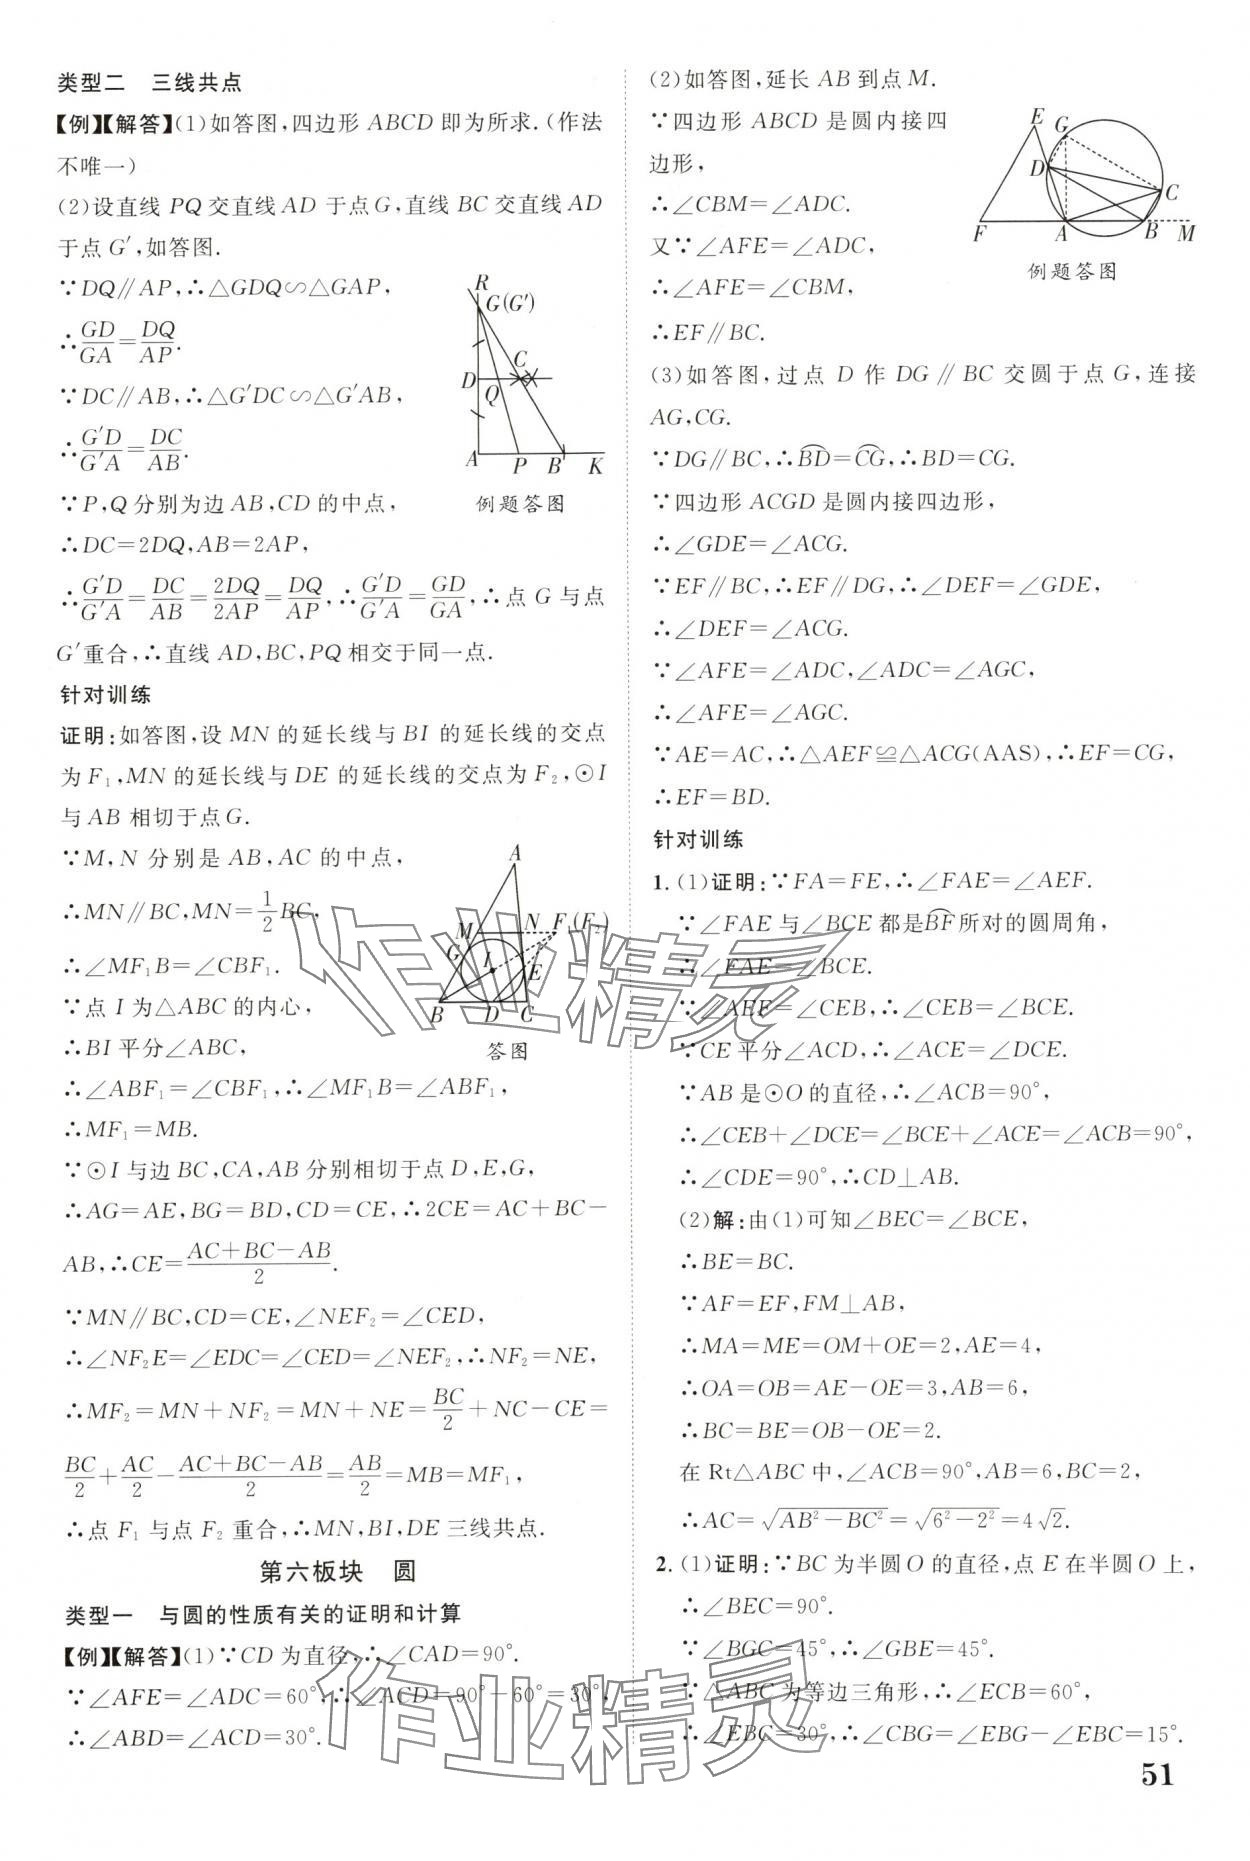 类型二　三线共点
【例】【解答】(1)如答图,四边形 ABCD 即为所求.(作法
不唯一)
(2)设直线 PQ 交直线 AD 于点 G,直线 BC 交直线 AD
于点 G′,如答图.
∵DQ∥AP,∴△GDQ∽△GAP,
∴GD/GA=DQ/AP.
∵DC∥AB,∴△G′DC∽△G′AB,
∴G′D/G′A=DC/AB.
∵P,Q 分别为边 AB,CD 的中点,
∴DC=2DQ,AB=2AP,
∴G′D/G′A=DC/AB=2DQ/2AP=DQ/AP,∴G′D/G′A=GD/GA,∴点 G 与点
G′重合,∴直线 AD,BC,PQ 相交于同一点.
R
G(G′)
C
D
Q
A P B K
例题答图
针对训练
证明:如答图,设 MN 的延长线与 BI 的延长线的交点
为 F₁,MN 的延长线与 DE 的延长线的交点为 F₂,⊙I
与 AB 相切于点 G.
∵M,N 分别是 AB,AC 的中点,
∴MN∥BC,MN=1/2BC,
∴∠MF₁B=∠CBF₁.
∵点 I 为△ABC 的内心,
∴BI 平分∠ABC,
∴∠ABF₁=∠CBF₁,∴∠MF₁B=∠ABF₁,
∴MF₁=MB.
A
M N F₁(F₂)
G I E
B D C
答图
∵⊙I 与边 BC,CA,AB 分别相切于点 D,E,G,
∴AG=AE,BG=BD,CD=CE,∴2CE=AC+BC-
AB,∴CE=(AC+BC-AB)/2.
∵MN∥BC,CD=CE,∠NEF₂=∠CED,
∴∠NF₂E=∠EDC=∠CED=∠NEF₂,∴NF₂=NE,
∴MF₂=MN+NF₂=MN+NE=BC/2+NC-CE=
BC/2+AC/2-(AC+BC-AB)/2=AB/2=MB=MF₁,
∴点 F₁与点 F₂重合,∴MN,BI,DE 三线共点.
第六板块　圆
类型一　与圆的性质有关的证明和计算
【例】【解答】(1)∵CD 为直径,∴∠CAD=90°.
∵∠AFE=∠ADC=60°,∴∠ACD=90°-60°=30°,
∴∠ABD=∠ACD=30°.
(2)如答图,延长 AB 到点 M.
∵四边形 ABCD 是圆内接四
边形,
∴∠CBM=∠ADC.
又∵∠AFE=∠ADC,
∴∠AFE=∠CBM,
∴EF∥BC.
E G
D
C
F A B M
例题答图
(3)如答图,过点 D 作 DG∥BC 交圆于点 G,连接
AG,CG.
∵DG∥BC,∴BD⌒=CG⌒,∴BD=CG.
∵四边形 ACGD 是圆内接四边形,
∴∠GDE=∠ACG.
∵EF∥BC,∴EF∥DG,∴∠DEF=∠GDE,
∴∠DEF=∠ACG.
∵∠AFE=∠ADC,∠ADC=∠AGC,
∴∠AFE=∠AGC.
∵AE=AC,∴△AEF≌△ACG(AAS),∴EF=CG,
∴EF=BD.
针对训练
1.(1)证明:∵FA=FE,∴∠FAE=∠AEF.
∵∠FAE 与∠BCE 都是BF⌒所对的圆周角,
∴∠FAE=∠BCE.
∵∠AEF=∠CEB,∴∠CEB=∠BCE.
∵CE 平分∠ACD,∴∠ACE=∠DCE.
∵AB 是⊙O 的直径,∴∠ACB=90°,
∴∠CEB+∠DCE=∠BCE+∠ACE=∠ACB=90°,
∴∠CDE=90°,∴CD⊥AB.
(2)解:由(1)可知∠BEC=∠BCE,
∴BE=BC.
∵AF=EF,FM⊥AB,
∴MA=ME=OM+OE=2,AE=4,
∴OA=OB=AE-OE=3,AB=6,
∴BC=BE=OB-OE=2.
在 Rt△ABC 中,∠ACB=90°,AB=6,BC=2,
∴AC=√(AB²-BC²)=√(6²-2²)=4√2.
2.(1)证明:∵BC 为半圆 O 的直径,点 E 在半圆 O 上,
∴∠BEC=90°.
∵∠BGC=45°,∴∠GBE=45°.
∵△ABC 为等边三角形,∴∠ECB=60°,
∴∠EBC=30°,∴∠CBG=∠EBG-∠EBC=15°.
51
作业精灵
作业精灵